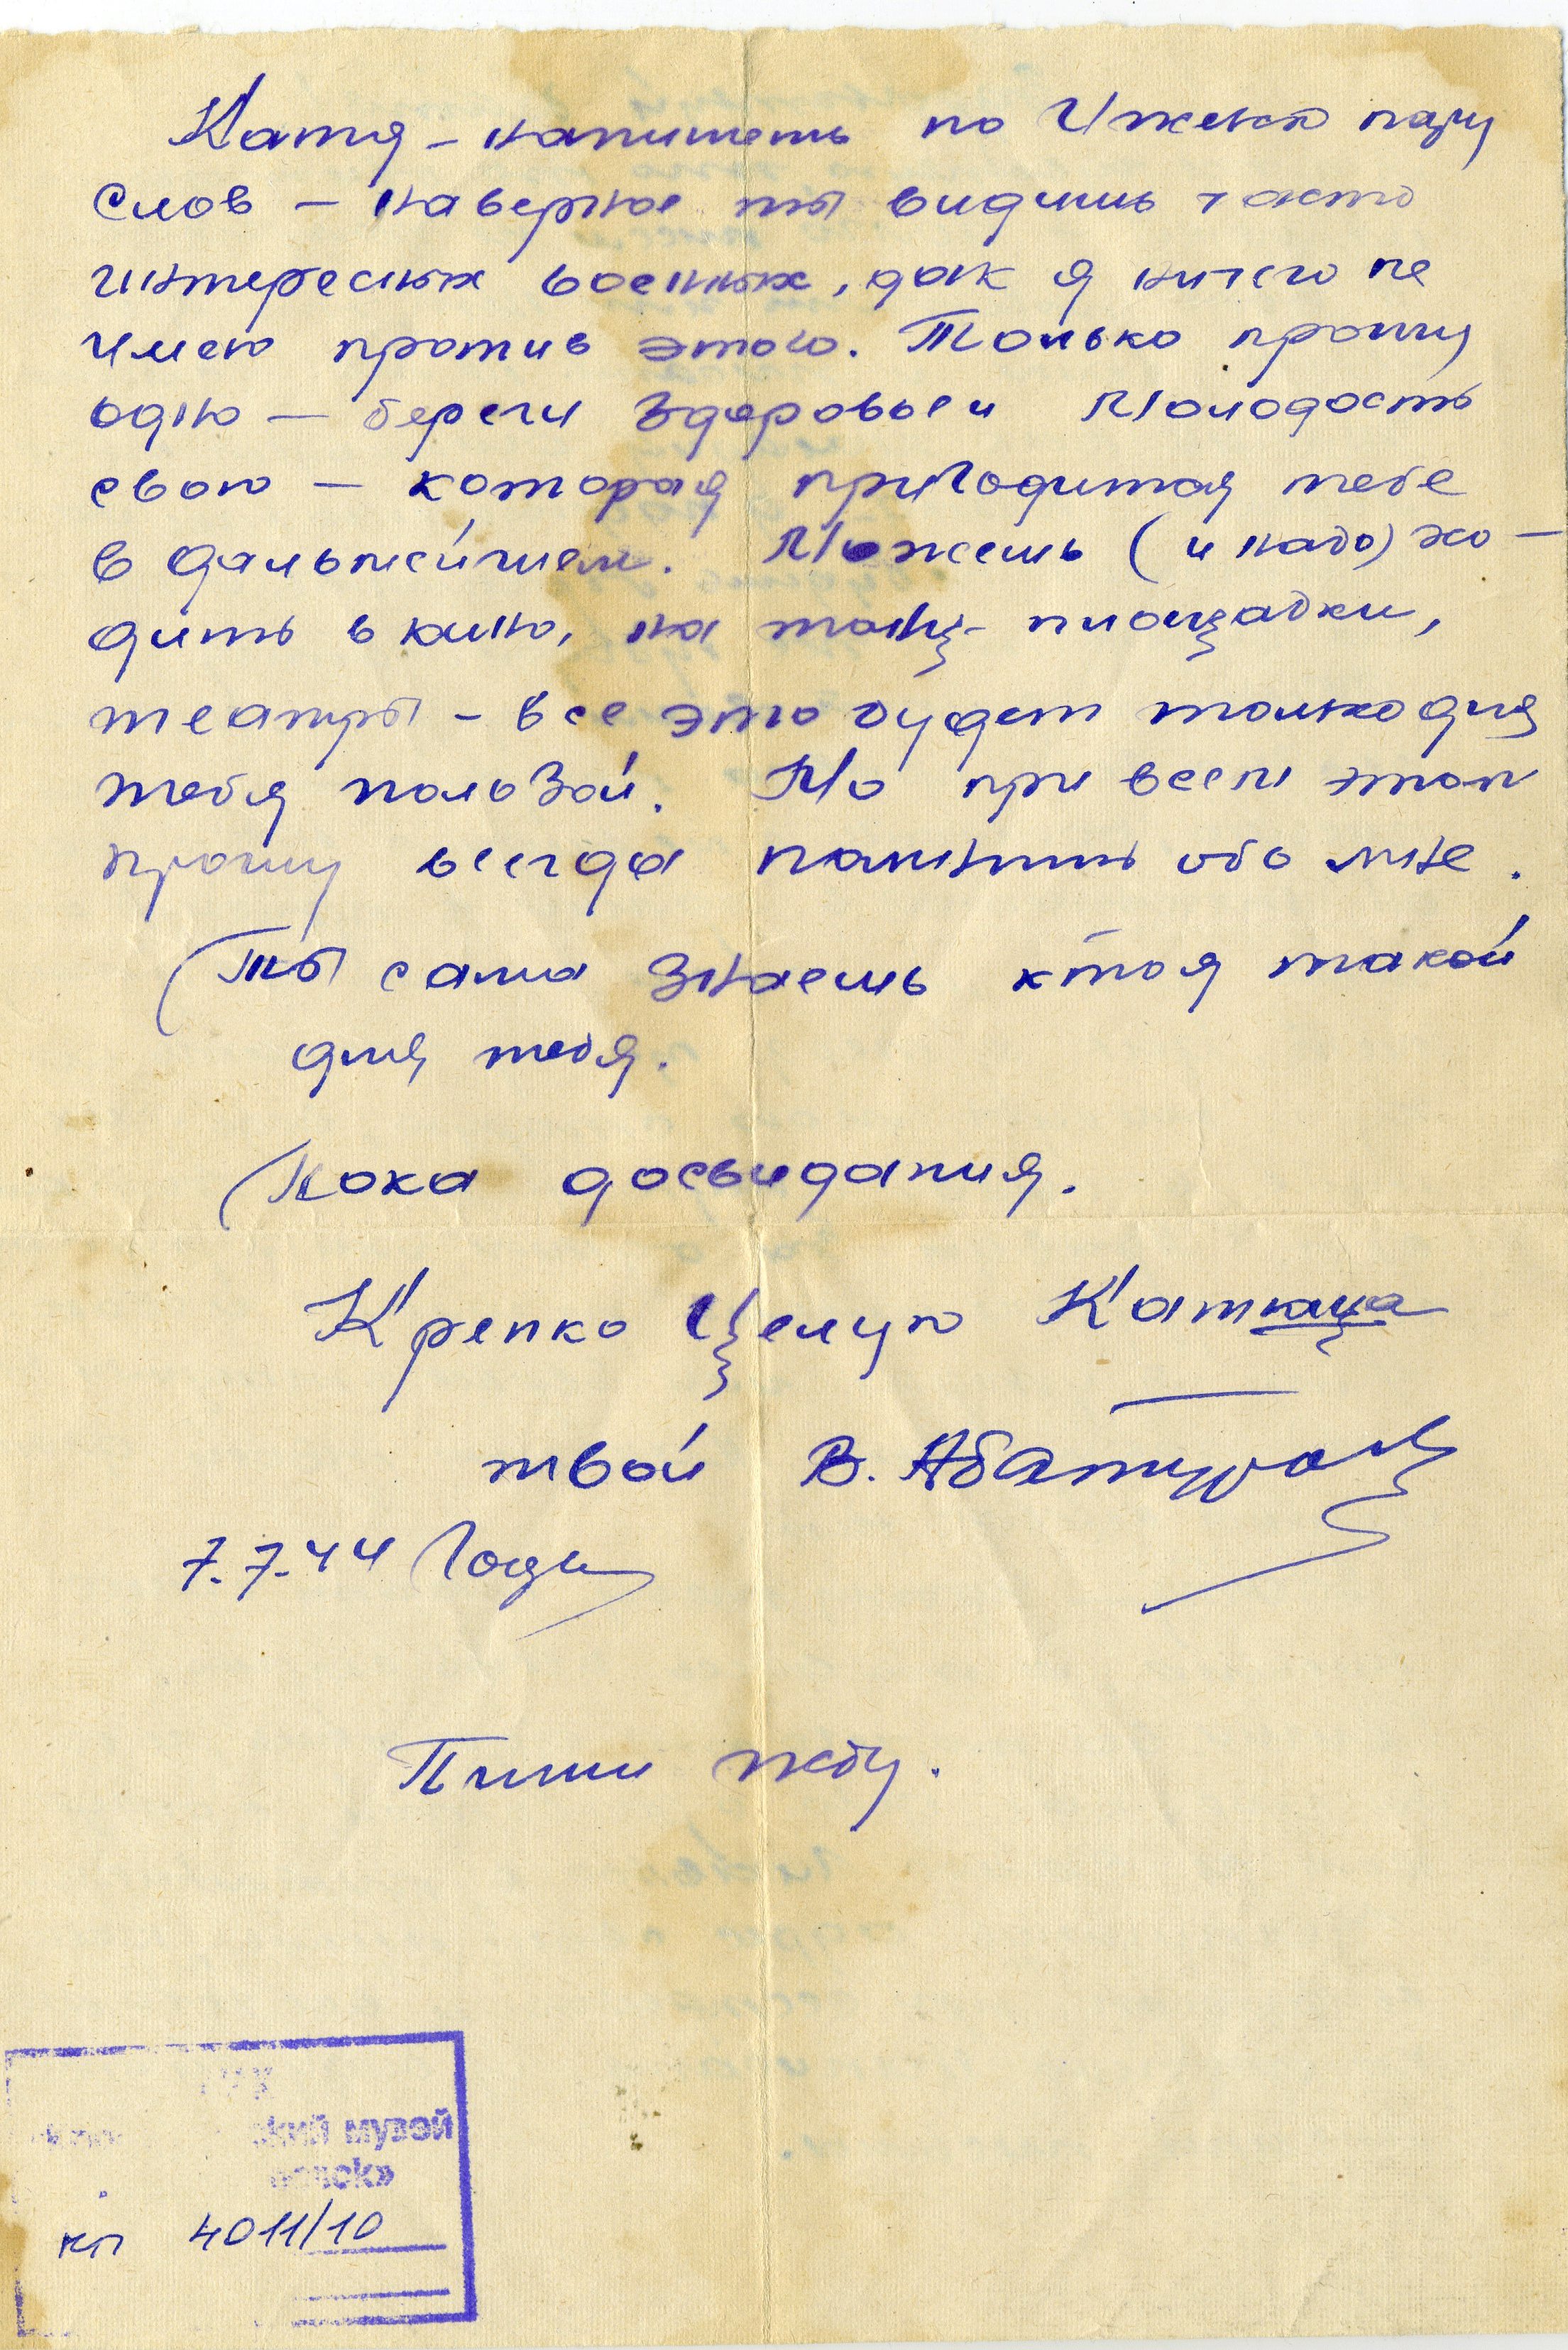 Катя – напишешь по Ижевск пару
слов – наверно ты видишь часто
интересных военных, дак я ничего не
имею против этого. Только прошу
одно – береги здоровье и молодость
свою – которая пригодится тебе
в дальнейшем. Можешь (и надо) хо–
дить в кино, на танц– площадки,
театры – все это будет только для
тебя пользой. Но при всем этом
прошу всегда помнить обо мне.
Ты сама знаешь кто я такой
для тебя.
Пока досвидания.
Крепко целую Катюша
твой В. Абатуров
7.7.44 Года
Пиши жду.
ский музей
КП 4011/10